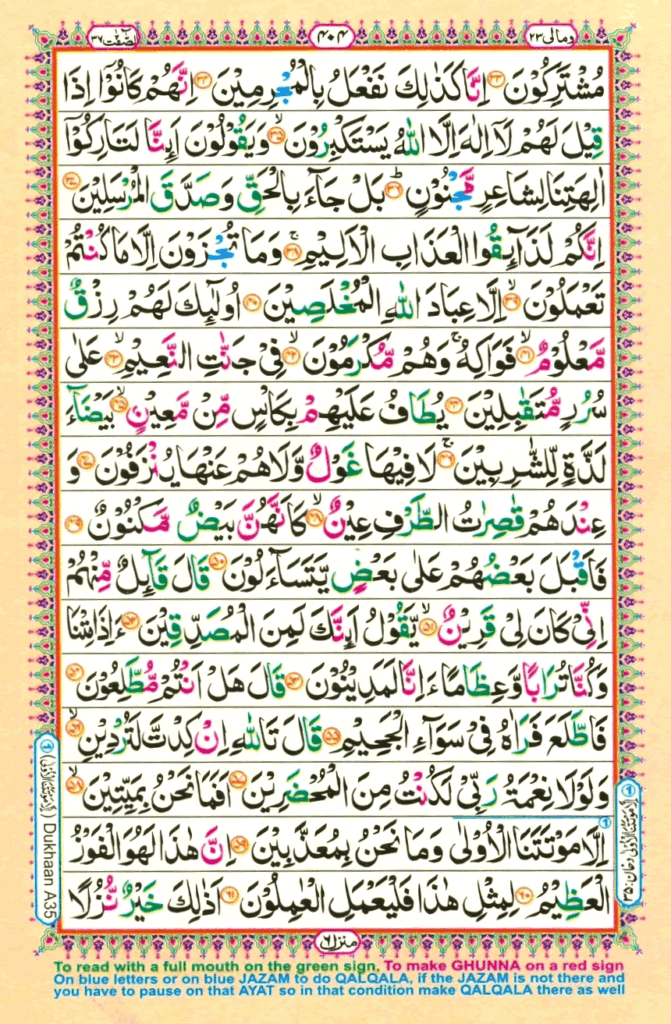 ومالى ٢٣
٤٠٤
الصّٰفّٰت ٣٧
مُشْتَرِكُوْنَ ﴿٣٣﴾ اِنَّا كَذٰلِكَ نَفْعَلُ بِالْمُجْرِمِيْنَ ﴿٣٤﴾ اِنَّهُمْ كَانُوْۤا اِذَا
قِيْلَ لَهُمْ لَاۤ اِلٰهَ اِلَّا اللّٰهُ يَسْتَكْبِرُوْنَ ﴿٣٥﴾ۙ وَيَقُوْلُوْنَ اَىِٕنَّا لَتَارِكُوْۤا
اٰلِهَتِنَا لِشَاعِرٍ مَّجْنُوْنٍ ﴿٣٦﴾ؕ بَلْ جَآءَ بِالْحَقِّ وَصَدَّقَ الْمُرْسَلِيْنَ ﴿٣٧﴾
اِنَّكُمْ لَذَآىِٕقُوا الْعَذَابِ الْاَلِيْمِ ﴿٣٨﴾ۚ وَمَا تُجْزَوْنَ اِلَّا مَا كُنْتُمْ
تَعْمَلُوْنَ ﴿٣٩﴾ۙ اِلَّا عِبَادَ اللّٰهِ الْمُخْلَصِيْنَ ﴿٤٠﴾ اُولٰٓىِٕكَ لَهُمْ رِزْقٌ
مَّعْلُوْمٌ ﴿٤١﴾ۙ فَوَاكِهُ ۚ وَهُمْ مُّكْرَمُوْنَ ﴿٤٢﴾ۙ فِىْ جَنّٰتِ النَّعِيْمِ ﴿٤٣﴾ۙ عَلٰى
سُرُرٍ مُّتَقٰبِلِيْنَ ﴿٤٤﴾ يُطَافُ عَلَيْهِمْ بِكَاْسٍ مِّنْ مَّعِيْنٍ ﴿٤٥﴾ۙ بَيْضَآءَ
لَذَّةٍ لِّلشّٰرِبِيْنَ ﴿٤٦﴾ۚ لَا فِيْهَا غَوْلٌ وَّلَا هُمْ عَنْهَا يُنْزَفُوْنَ ﴿٤٧﴾ وَ
عِنْدَهُمْ قٰصِرٰتُ الطَّرْفِ عِيْنٌ ﴿٤٨﴾ۙ كَاَنَّهُنَّ بَيْضٌ مَّكْنُوْنٌ ﴿٤٩﴾
فَاَقْبَلَ بَعْضُهُمْ عَلٰى بَعْضٍ يَّتَسَآءَلُوْنَ ﴿٥٠﴾ قَالَ قَآىِٕلٌ مِّنْهُمْ
اِنِّىْ كَانَ لِىْ قَرِيْنٌ ﴿٥١﴾ۙ يَّقُوْلُ اَىِٕنَّكَ لَمِنَ الْمُصَدِّقِيْنَ ﴿٥٢﴾ ءَاِذَا مِتْنَا
وَكُنَّا تُرَابًا وَّعِظَامًا ءَاِنَّا لَمَدِيْنُوْنَ ﴿٥٣﴾ قَالَ هَلْ اَنْتُمْ مُّطَّلِعُوْنَ ﴿٥٤﴾
فَاطَّلَعَ فَرَاٰهُ فِىْ سَوَآءِ الْجَحِيْمِ ﴿٥٥﴾ قَالَ تَاللّٰهِ اِنْ كِدْتَّ لَتُرْدِيْنِ ﴿٥٦﴾ۙ
وَلَوْلَا نِعْمَةُ رَبِّىْ لَكُنْتُ مِنَ الْمُحْضَرِيْنَ ﴿٥٧﴾ اَفَمَا نَحْنُ بِمَيِّتِيْنَ ﴿٥٨﴾ۙ
اِلَّا مَوْتَتَنَا الْاُوْلٰى وَمَا نَحْنُ بِمُعَذَّبِيْنَ ﴿٥٩﴾ اِنَّ هٰذَا لَهُوَ الْفَوْزُ
الْعَظِيْمُ ﴿٦٠﴾ لِمِثْلِ هٰذَا فَلْيَعْمَلِ الْعٰمِلُوْنَ ﴿٦١﴾ اَذٰلِكَ خَيْرٌ نُّزُلًا
① (اِلَّا مَوْتَتَنَا الْاُوْلٰى) Dukhaan A35
① اِلَّا مَوْتَتَنَا الْاُوْلٰى دخان: ٣٥
منزل ٦
To read with a full mouth on the green sign, To make GHUNNA on a red sign
On blue letters or on blue JAZAM to do QALQALA, if the JAZAM is not there and
you have to pause on that AYAT so in that condition make QALQALA there as well